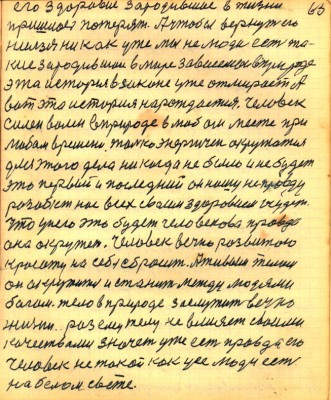 63
его здоровие зародившие в жизни
пришлось потерят. А чтобы вернут его
нельзя ни как уже мы не люди ест та-
кие зародивший в мире зависимом в природе
эта история в законе уже отмирает. А
вот эта история нарождается. Человек
силен волей в природе в любом месте при
любом времени. только энергичен окружатся
для этого дела никогда не было и не будет
это первый и последний он нашу неправду
всех своим здоровием
Что у него это будет человекова правда
она окружет. Человек вечно розвитою
красоту на себя сбросит. А живым телом
он окружит и станит между людями
богом. тело в природе заслужит вечно
жизни. роз ему телу не влияет своими
качествами значет уже ест правда его
Человек не такой как усе люди ест
на белом свете.